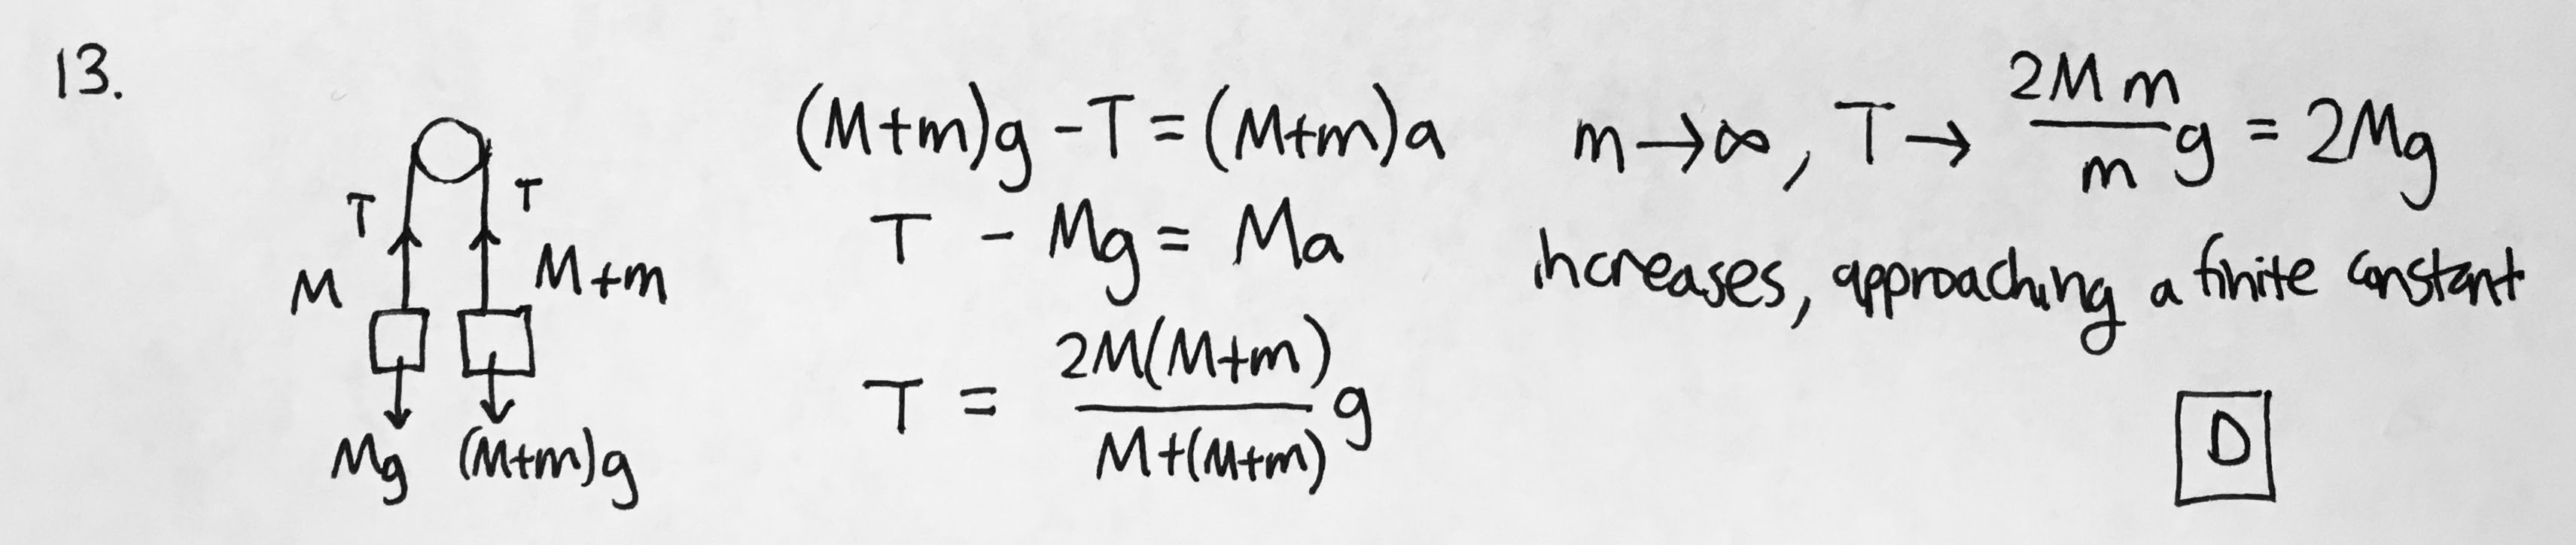 13.
T T
M M+m
Mg (M+m)g
(M+m)g - T = (M+m)a
T - Mg = Ma
T = 2M(M+m)/M+(M+m) g
m→∞, T→ 2Mm/m g = 2Mg
increases, approaching a finite constant
D